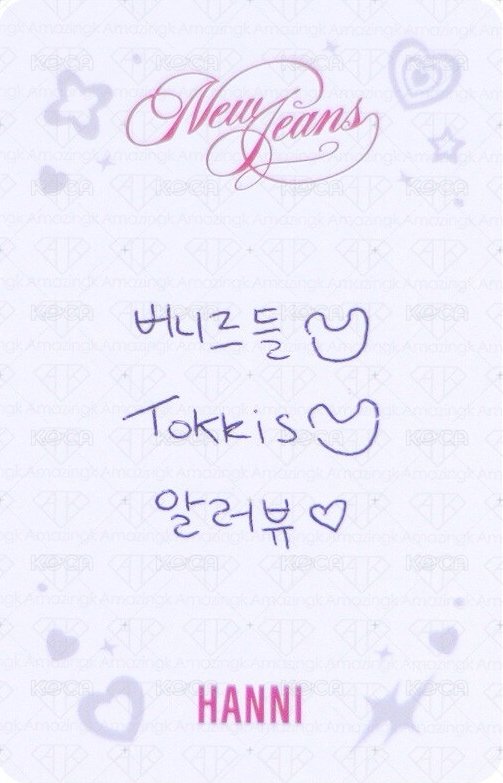 NewJeans
버니르들
Tokkis
알러뷰♡
HANNI